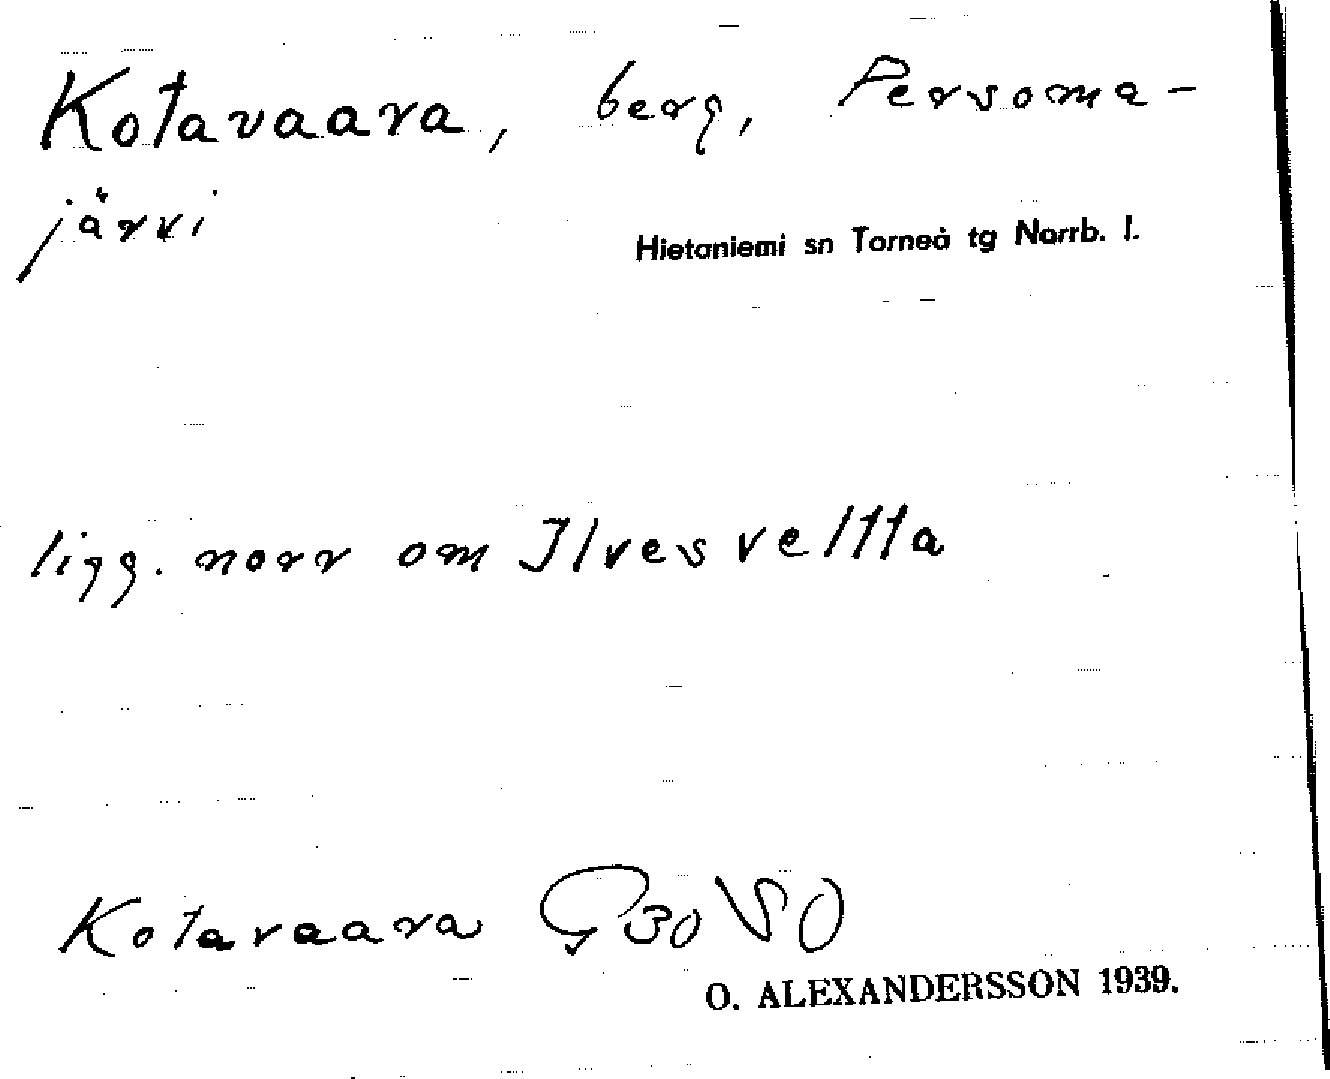 Kotavaara, berg, Persoma-
järvi
Hietaniemi sn Torneå tg Norrb. l.
ligg. norr om Ilvesveltta
Kotavaara G 30 SO
O. ALEXANDERSSON 1939.